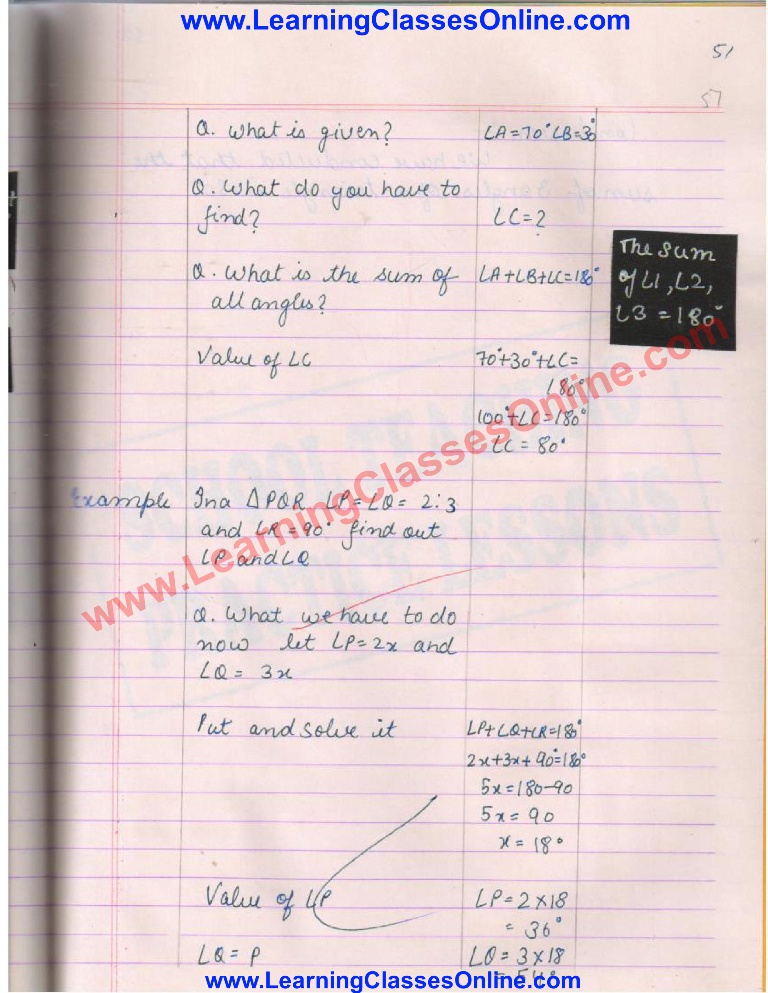 www.LearningClassesOnline.com
51
57
Q. What is given? LA=70° LB=30°
Q. What do you have to
find? LC=?
Q. What is the sum of LA+LB+LC=180°
all angles?
The Sum
of L1, L2,
L3 = 180°
Value of LC 70°+30°+LC=
180°
100°+LC=180°
LC=80°
Example In a ΔPQR LP=LQ= 2:3
and LR=90° find out
LP and LQ
www.LearningClassesOnline.com
Q. What we have to do
now let LP=2x and
LQ= 3x
Put and solve it LP+LQ+LR=180°
2x+3x+90°=180°
5x=180-90
5x= 90
x=18°
Value of LP LP=2×18
= 36°
LQ=P LQ=3×18
= 54°
www.LearningClassesOnline.com